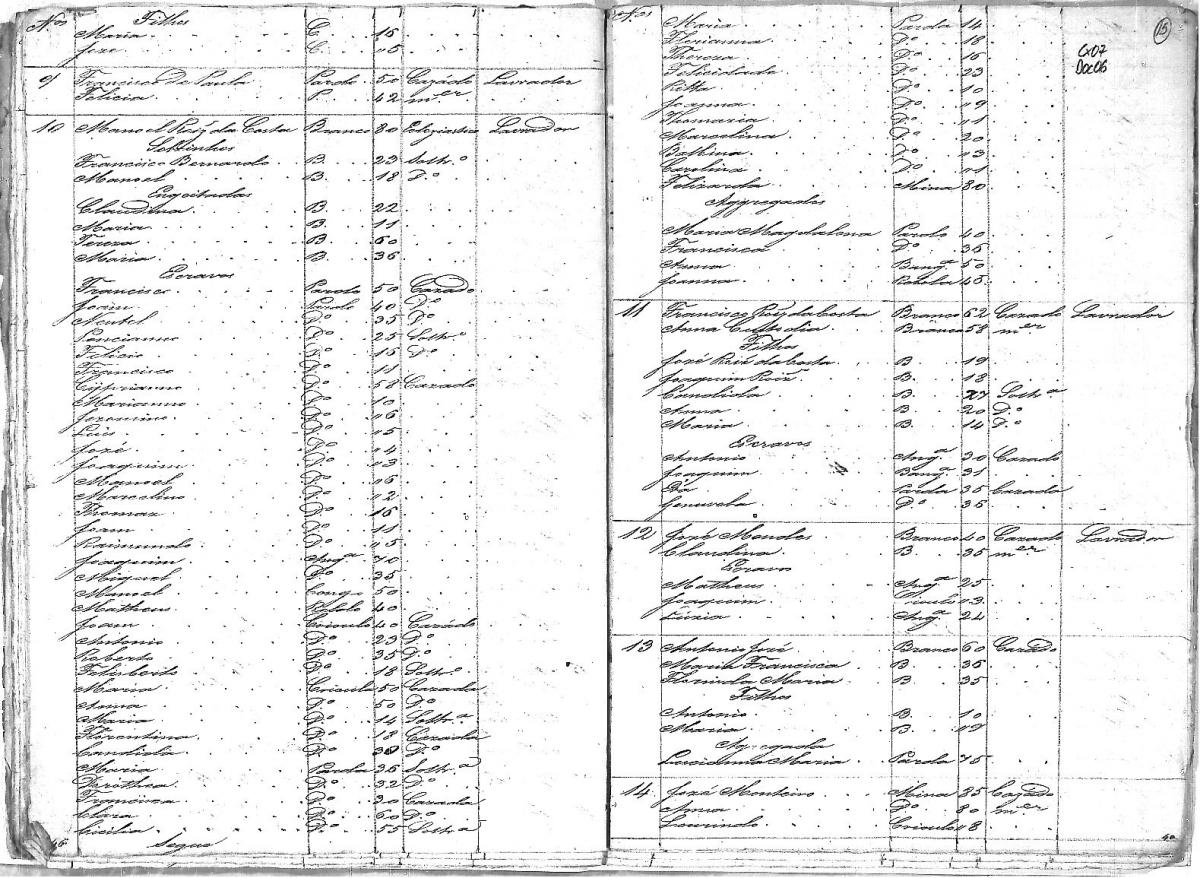 Nos Filhos
Maria C 15
Joze C 05
9 Francisco de Paula Pardo 50 Cazádo Lavrador
Felicia P. 42 m.er
10 Manoel Roiz da Costa Branco 80 Eclegiastico Lavrador
Francisco Bernardo B. 23 Solth.o
Manoel B. 18 D.o
Engeitadas
Claudina B 22
Maria B. 11
Tereza B 60
Maria B. 36
Escravos
Francisco Pardo 50 Cazado
Joam Pardo 40 D.o
Neutel D.o 35 D.o
Poncianno D.o 25 Solth.o
Felicio D.o 15 D.o
Francisco D.o 11
Ciprianno D.o 58 Cazado
Marianno D.o 10
Jeronimo D.o 06
Luis D.o 05
José D.o 04
Joaquim D.o 03
Manoel D.o 05
Marcelino D.o 02
Thomaz D.o 16
Joam D.o 11
Raimundo D.o 05
Joaquim Ang.a 70
Miguel D.o 35
Manoel Congo 50
Matheus Rebolo 40
Joam Crioulo 40 Cazádo
Antonio D.o 23 D.o
Roberto D.o 35 D.o
Felisberto D.o 18 Solth.o
Maria Crioula 50 Cazada
Anna D.o 50 D.o
Maria D.o 14 Solth.a
Florentina D.o 18 Cazáda
Candida D.o 30 D.o
Maria Parda 36 Solth.a
Dorothea D.o 32 D.o
Francisca D.o 30 Cazada
Clara D.o 60 D.o
Cicilia D.o 55 Solth.a
46 Segue
Nos Maria Parda 14
Florianna D.o 18
Thereza D.o 16
Felicidade D.o 23
Ritta D.o 10
Joanna D.o 09
Thomazia D.o 01
Marcelina D.o 20
Balbina D.o 03
Carolina D.o 01
Felizarda Mina 80
Aggregados
Maria Magdalena Pardo 40
Francisca D.o 36
Anna Bang.a 50
Joanna Rebola 45
15
Cx07
Doc06
11 Francisco Roiz da Costa Branco 62 Cazado Lavrador
Anna Custodia Branca 58 m.er
Filhos
José Roiz da Costa B 19
Joaquim Roiz B. 18
Candida B. 27 Solth.a
Anna B 20 D.o
Maria B. 14 D.o
Escravos
Antonio Ang.a 30 Cazado
Joaquim Bang.a 31
Parda 35 Cazada
Genuveva D.o 35
12 José Mendes Branco 40 Cazado Lavrador
Claudina B. 35 m.er
Escravos
Matheus Ang.a 25
Joaquim Crioulo 03
Luzia Ang.a 24
13 Antonio José Branco 60 Cazado
Maria Francisca B. 35
Florinda Maria B 35
Filhos
Antonio B. 10
Maria B. 09
Agregada
Lucianna Maria Parda 75
14 José Monteiro Mina 35 Cazado
Anna D.o 80 m.er
Laurindo Crioulo 08
40